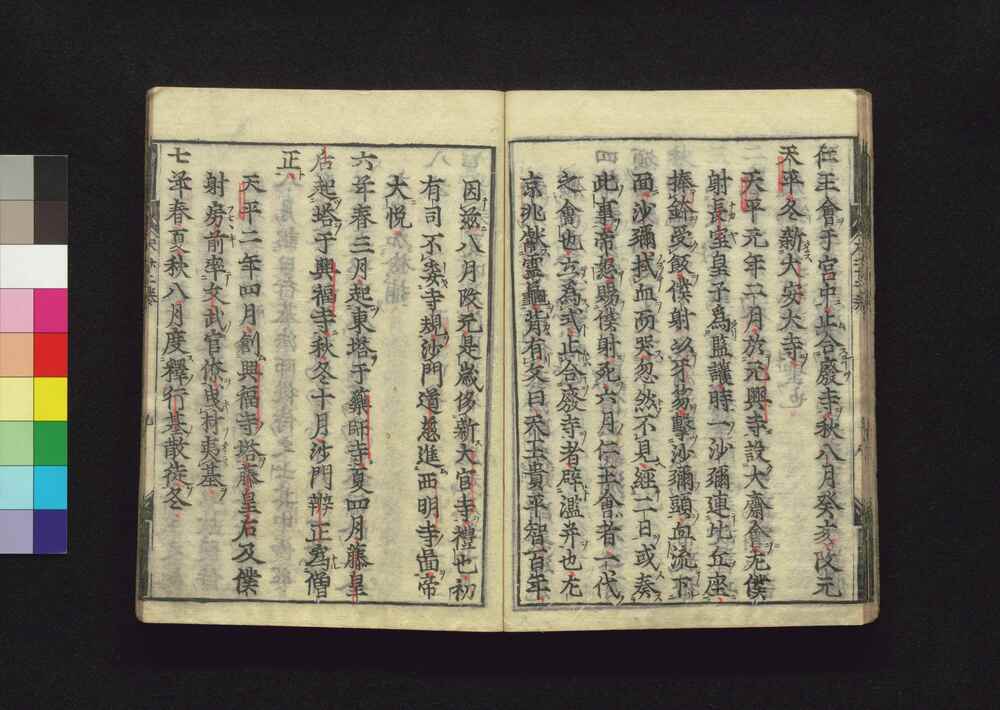 仁王會于宮中止合廢寺秋八月癸亥改元
天平冬新大安大寺
天平元年二月於元興寺設大齋會左僕
射長室皇子爲監護時一沙彌連比丘座
捧鉢受飯僕射以牙笏擊沙彌頭血流下
面沙彌拭血而哭忽然不見經二日或奏
此事帝怒賜僕射死六月仁王會者一代
之會也立爲式止合廢寺者辟濫幷也左
京兆獻靈龜背有文曰天王貴平智百年
因茲八月改元是歲侈新大官寺禮也初
有司不委寺規沙門道慈進西明寺啚帝
大悅
六年春三月起東塔于藥師寺夏四月藤皇
后起塔于興福寺秋冬十月沙門辨正爲僧
正
天平二年四月創興福寺塔藤皇后及僕
射房前率文武官僚曳材夷基
七年春夏秋八月度釋行基散徒冬